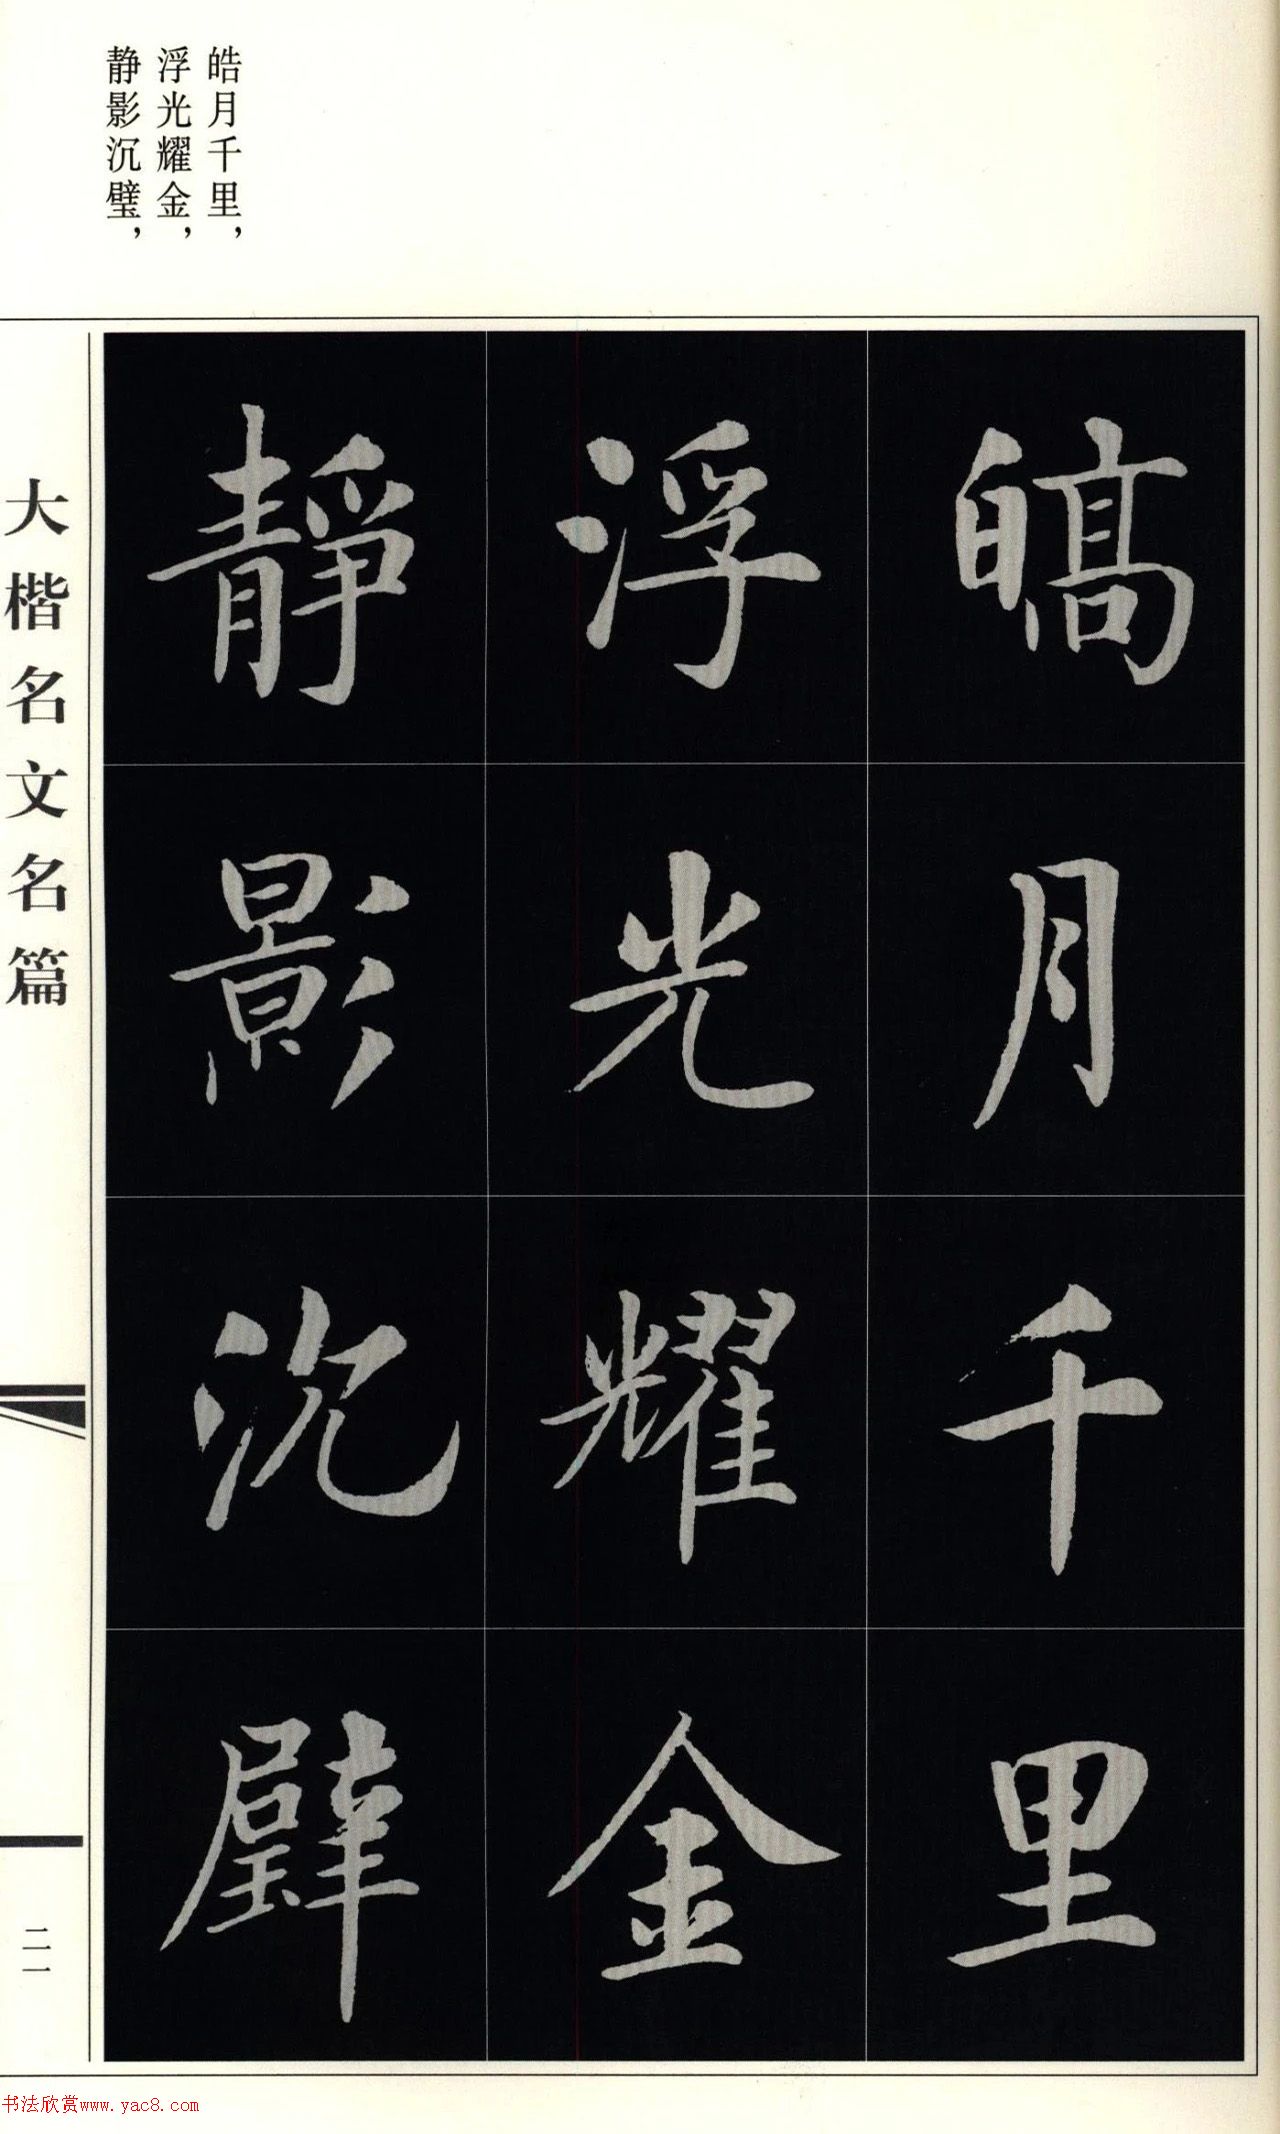 皓月千里，
浮光耀金，
静影沉璧，
皜月千里
浮光耀金
靜影沉璧
大楷名文名篇
二一
书法欣赏www.yac8.com